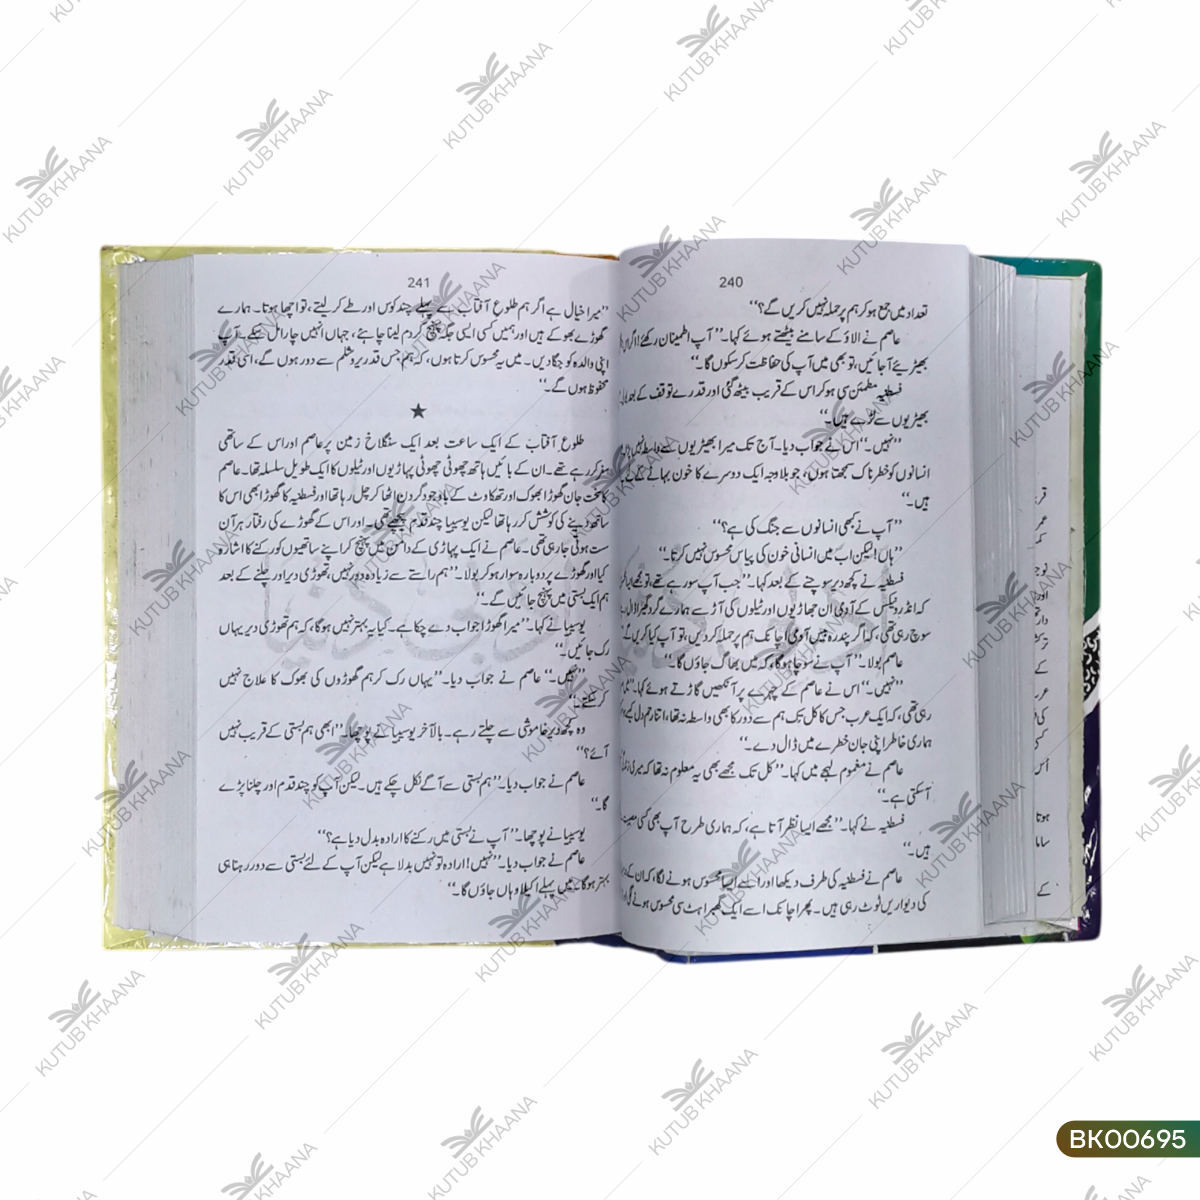 240
تعداد میں جمع ہو کر ہم پر حملہ نہیں کریں گے؟‘‘
عاصم نے الاؤ کے سامنے بیٹھتے ہوئے کہا۔ ’’آپ اطمینان رکھئے! اگر
بھیڑیئے آ جائیں، تو بھی میں آپ کی حفاظت کر سکوں گا۔‘‘
فسطینہ مطمئن سی ہو کر اس کے قریب بیٹھ گئی اور قدرے توقف کے بعد
بھیڑیوں سے لڑے ہیں۔‘‘
’’نہیں۔‘‘ اس نے جواب دیا۔ آج تک میرا بھیڑیوں سے واسطہ نہیں
انسانوں کو خطرناک سمجھتا ہوں، جو بلاوجہ ایک دوسرے کا خون بہانے کے لئے
ہیں۔‘‘
’’آپ نے کبھی انسانوں سے جنگ کی ہے؟‘‘
’’ہاں! لیکن اب میں انسانی خون کی پیاس محسوس نہیں کرتا۔‘‘
فسطینہ نے کچھ دیر سوچنے کے بعد کہا۔ ’’جب آپ سو رہے تھے، تو مجھے ایسا
کہ انڈرونیکس کے آدمی ان جھاڑیوں اور ٹیلوں کی آڑ سے ہمارے گرد گھیرا ڈال
سوچ رہی تھی، کہ اگر پندرہ بیس آدمی اچانک ہم پر حملہ کر دیں، تو آپ کیا کریں گے
عاصم بولا۔ ’’آپ نے سوچا ہوگا، کہ میں بھاگ جاؤں گا۔‘‘
’’نہیں۔‘‘ اس نے عاصم کے چہرے پر آنکھیں گاڑتے ہوئے کہا۔
رہی تھی، کہ ایک عرب جس کا کل تک ہم سے دور کا بھی واسطہ نہ تھا، اتنا رحم دل کیسے
ہماری خاطر اپنی جان خطرے میں ڈال دے۔‘‘
عاصم نے مغموم لہجے میں کہا۔ ’’کل تک مجھے بھی یہ معلوم نہ تھا کہ میری
آ سکتی ہے۔‘‘
فسطینہ نے کہا۔ ’’مجھے ایسا نظر آتا ہے، کہ ہماری طرح آپ بھی کسی
ہیں۔‘‘
عاصم نے فسطینہ کی طرف دیکھا اور اسے ایسا محسوس ہونے لگا، کہ ان کے
کی دیواریں ٹوٹ رہی ہیں۔ پھر اچانک اسے ایک گھبراہٹ سی محسوس ہونے لگی
241
’’میرا خیال ہے اگر ہم طلوع آفتاب سے پہلے چند کوس اور طے کر لیتے، تو اچھا ہوتا۔ ہمارے
گھوڑے بھوکے ہیں اور ہمیں کسی ایسی جگہ پہنچ کر دم لینا چاہئے، جہاں انہیں چارا مل سکے۔ آپ
اپنی والدہ کو جگا دیں۔ میں یہ محسوس کرتا ہوں، کہ ہم جس قدر یروشلم سے دور ہوں گے، اسی قدر
محفوظ ہوں گے۔‘‘
★
طلوع آفتاب کے ایک ساعت بعد ایک سنگلاخ زمین پر عاصم اور اس کے ساتھی
سفر کر رہے تھے۔ ان کے بائیں ہاتھ چھوٹی چھوٹی پہاڑیوں اور ٹیلوں کا ایک طویل سلسلہ تھا۔ عاصم
کا سخت جان گھوڑا بھوک اور تھکاوٹ کے باوجود گردن اٹھا کر چل رہا تھا اور فسطینہ کا گھوڑا بھی اس کا
ساتھ دینے کی کوشش کر رہا تھا لیکن یوسیبیا چند قدم پیچھے تھی۔ اور اس کے گھوڑے کی رفتار ہر آن
ست ہوتی جا رہی تھی۔ عاصم نے ایک پہاڑی کے دامن میں پہنچ کر اپنے ساتھیوں کو رکنے کا اشارہ
کیا اور گھوڑے پر دوبارہ سوار ہو کر بولا۔ ’’ہم راستے سے زیادہ دور نہیں، تھوڑی دیر اور چلنے کے بعد
ہم ایک بستی میں پہنچ جائیں گے۔‘‘
یوسیبیا نے کہا۔ ’’میرا گھوڑا جواب دے چکا ہے۔ کیا یہ بہتر نہیں ہوگا، کہ ہم تھوڑی دیر یہاں
رک جائیں۔‘‘
’’نہیں۔‘‘ عاصم نے جواب دیا۔ ’’یہاں رک کر ہم گھوڑوں کی بھوک کا علاج نہیں
کر سکتے۔‘‘
وہ کچھ دیر خاموشی سے چلتے رہے۔ بالآخر یوسیبیا نے پوچھا۔ ’’ابھی ہم بستی کے قریب نہیں
آئے؟‘‘
عاصم نے جواب دیا۔ ’’ہم بستی سے آگے نکل چکے ہیں۔ لیکن آپ کو چند قدم اور چلنا پڑے
گا۔‘‘
یوسیبیا نے پوچھا۔ ’’آپ نے بستی میں رکنے کا ارادہ بدل دیا ہے؟‘‘
عاصم نے جواب دیا۔ ’’نہیں! ارادہ تو نہیں بدلا ہے لیکن آپ کے لئے بستی سے دور رہنا ہی
بہتر ہوگا۔ میں پہلے اکیلا وہاں جاؤں گا۔‘‘
KUTUB KHAANA
BK00695